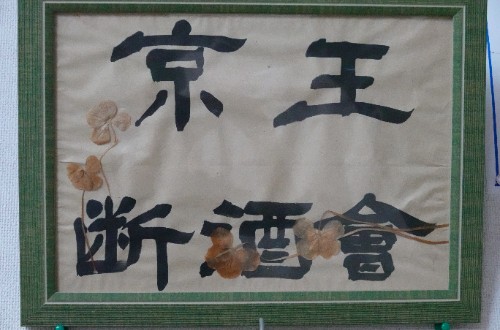 京王
断酒會